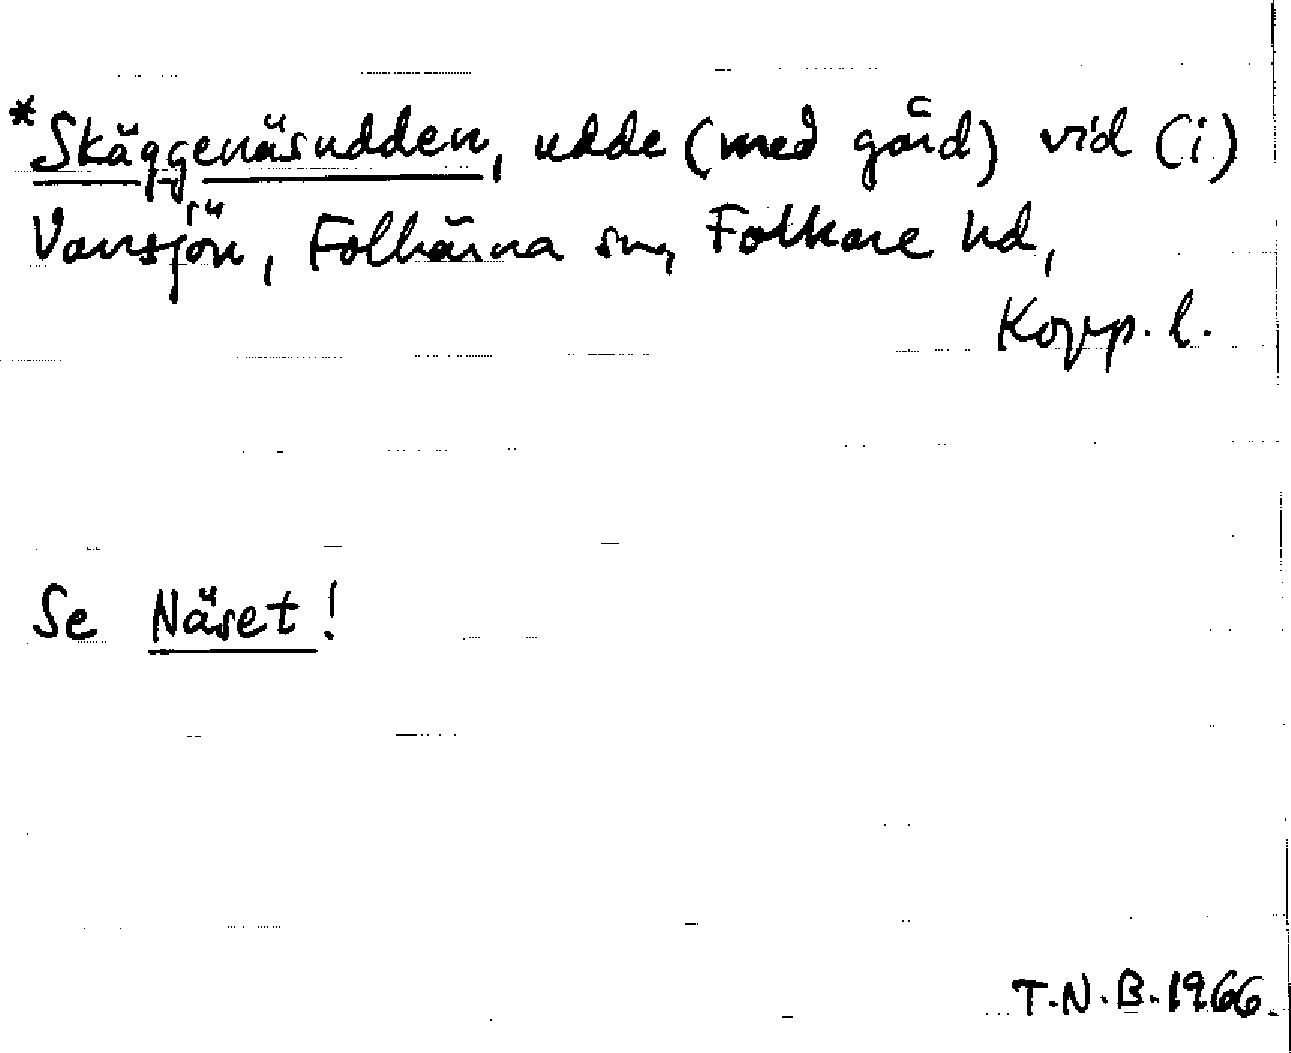 *Skäggenäsudden, udde (med gård) vid (i)
Vansjön, Folkärna sn, Folkare hd,
Kopp. l.
Se Näset!
T.N.B. 1966.